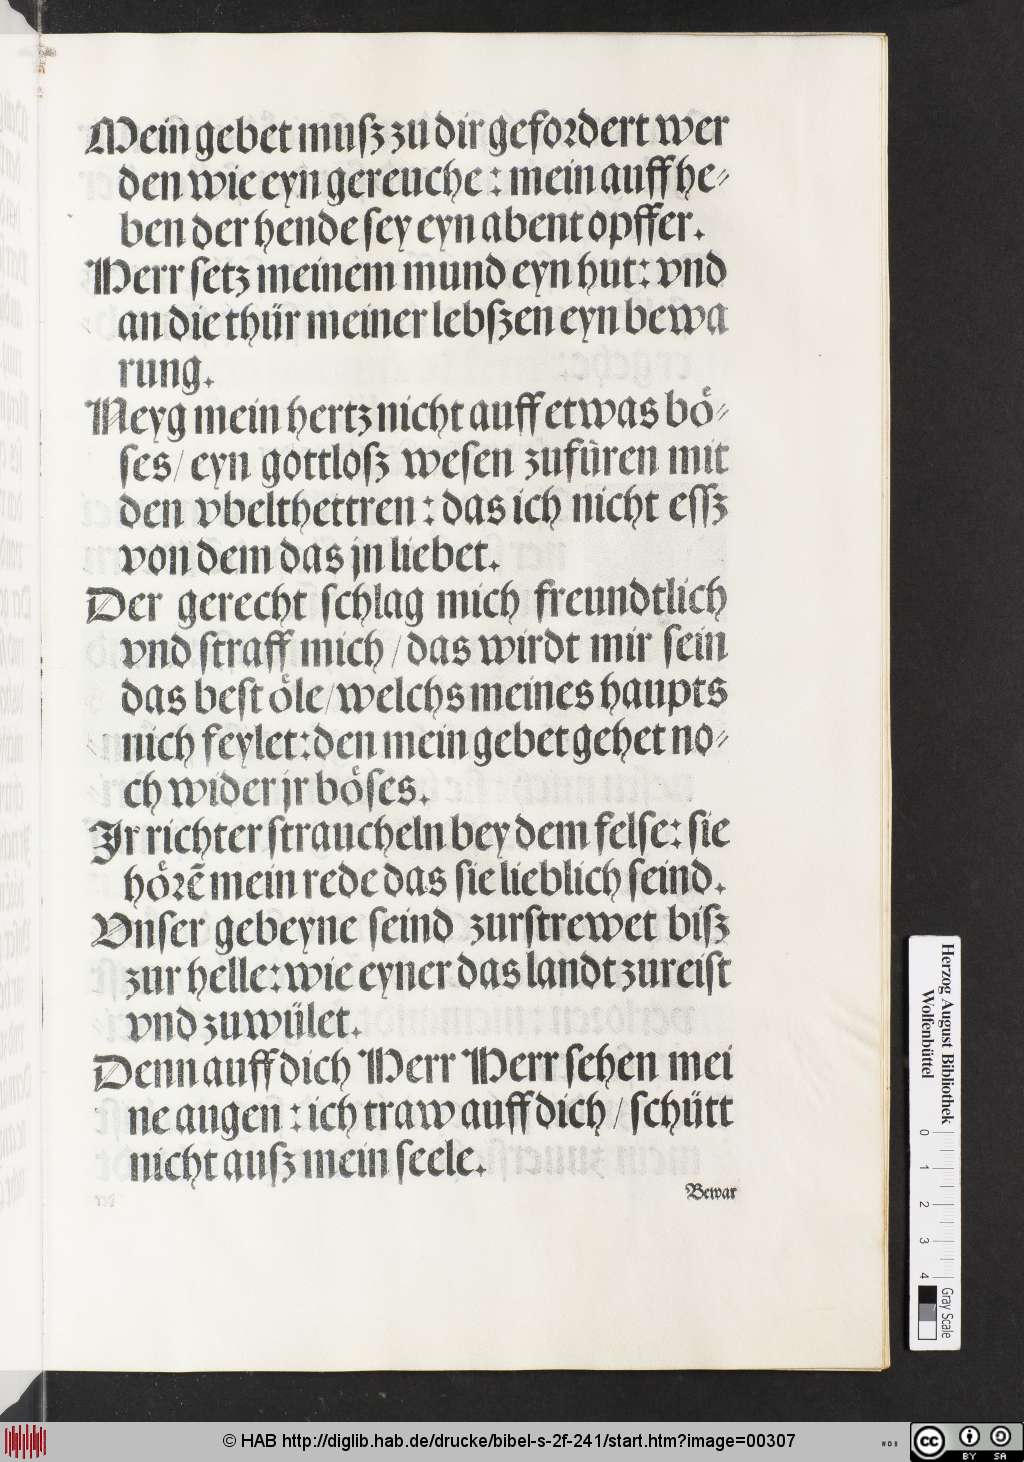 Mein gebet muſz zu dir gefordert wer
den wie eyn gereuche : mein auff he⸗
ben der hende ſey eyn abent opffer.
Herr ſetz meinem mund eyn hut: vnd
an die thür meiner lebſzen eyn bewa
rung.
Neyg mein hertz nicht auff etwas boͤ⸗
ſes/ eyn gottloſz weſen zufüren mit
den vbelthettren : das ich nicht eſſz
von dem das jn liebet.
Der gerecht ſchlag mich freundtlich
vnd ſtraff mich / das wirdt mir ſein
das beſt oͤle/ welchs meines haupts
nich feylet: den mein gebet gehet no⸗
ch wider jr boͤſes.
Jr richter ſtraucheln bey dem felſe: ſie
hoͤrē mein rede das ſie lieblich ſeind.
Vnſer gebeyne ſeind zurſtrewet biſz
zur helle: wie eyner das landt zureiſt
vnd zuwület.
Denn auff dich Herr Herr ſehen mei
ne augen : ich traw auff dich / ſchütt
nicht auſz mein ſeele.
Bewar
Herzog August Bibliothek
Wolfenbüttel
0 1 2 3 4
Gray Scale
© HAB http://diglib.hab.de/drucke/bibel-s-2f-241/start.htm?image=00307
WDB
cc BY SA